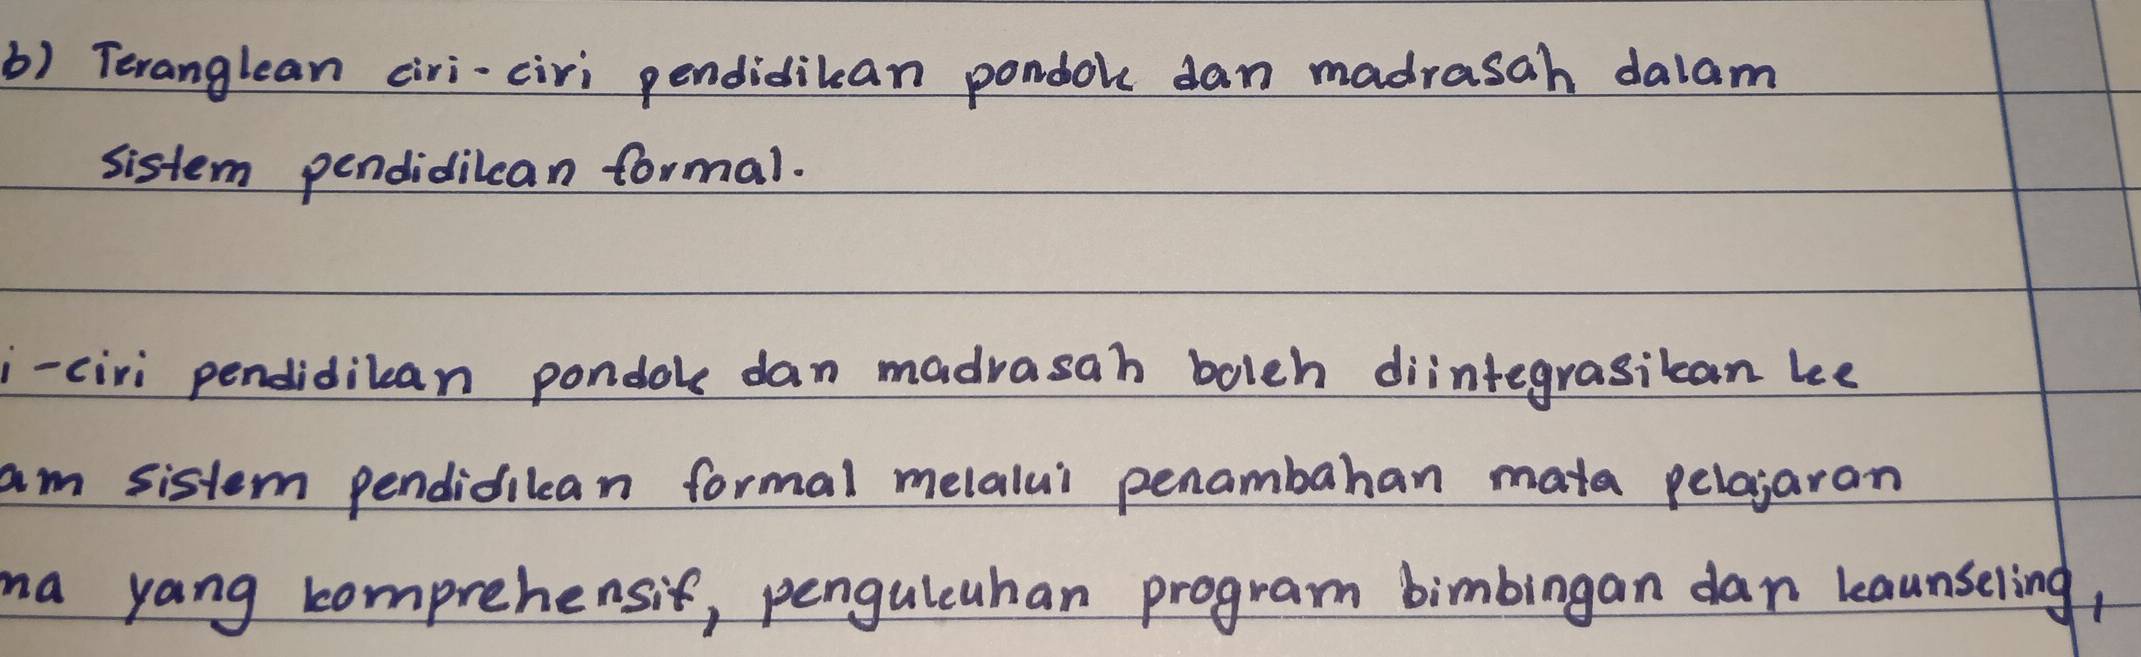 b) Terangkan ciri-ciri pendidikan pondok dan madrasah dalam
sistem pendidikan formal.
i-ciri pendidikan pondok dan madrasah boleh diintegrasikan ke
am sistem pendidikan formal melalui penambahan mata pelajaran
ma yang komprehensif, pengukuhan program bimbingan dan kaunseling,